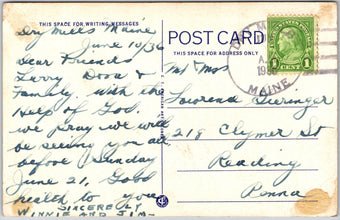 THIS SPACE FOR WRITING MESSAGES
Dry Mills Maine
June 10/36
Dear Friends
Larry Dora &
Family. with the
Help of God.
we pray we will
be seeing you all
before Sunday
June 21. Good
health to you
SINCERELY
WINNIE AND JIM-
POST CARD
THIS SPACE FOR ADDRESS ONLY
Mr & Mrs
Lawrence Gieringer
218 Clymer St
Reading
Penna
DRY MILLS
MAINE
1 CENT 1